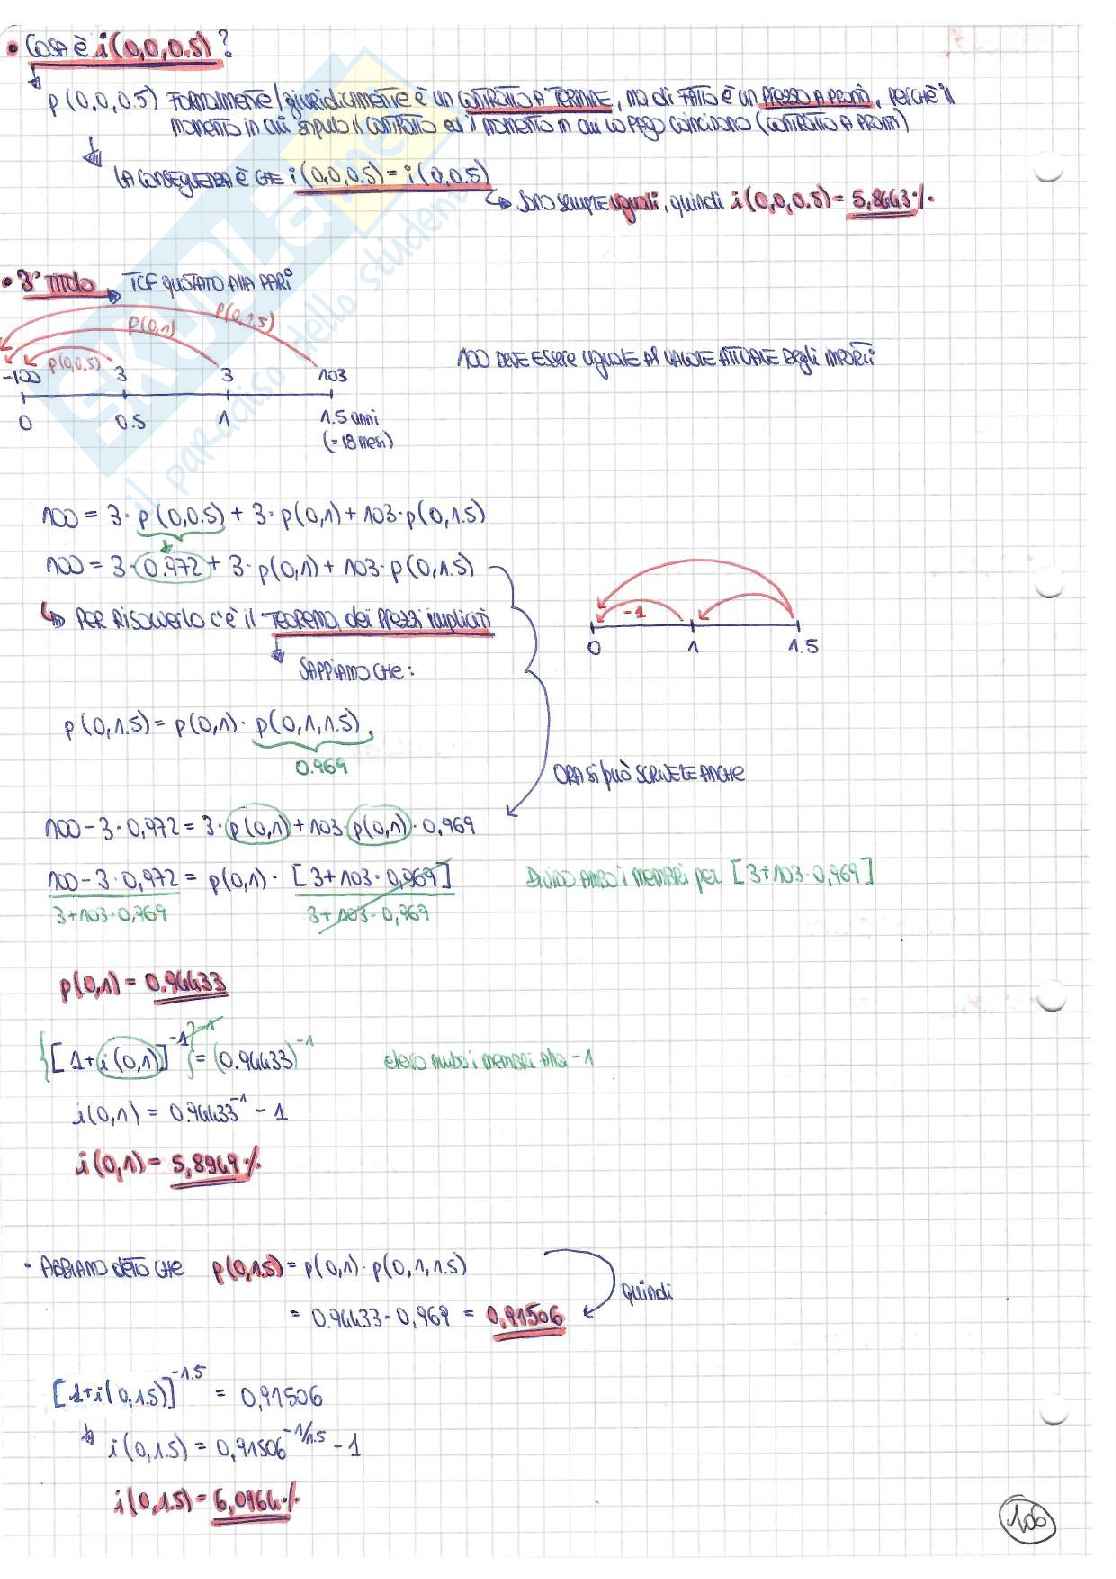 • COSA È i(0,0,0.5)?
p(0,0,0.5) FORMALMENTE/giuridicamente È UN CONTRATTO A TERMINE, MA DI FATTO È UN PREZZO A PRONTI, PERCHÈ IL
MOMENTO IN CUI STIPULO IL CONTRATTO ED IL MOMENTO IN CUI LO PAGO COINCIDONO (CONTRATTO A PRONTI)
LA CONSEGUENZA È CHE i(0,0,0.5) = i(0,0.5)
SONO SEMPRE uguali, quindi i(0,0,0.5) = 5,8443%
• 3° TITOLO TCF QUOTATO ALLA PARI
p(0,1.5)
p(0,1)
p(0,0.5)
-100 3 3 103
0 0.5 1 1.5 anni
(=18 mesi)
100 DEVE ESSERE UGUALE AL VALORE ATTUALE DEGLI IMPORTI
100 = 3· p(0,0.5) + 3· p(0,1) + 103· p(0,1.5)
100 = 3· 0.972 + 3· p(0,1) + 103· p(0,1.5)
PER RISOLVERLO C'È IL TEOREMA dei PREZZI impliciti
-1
0 1 1.5
SAPPIAMO CHE:
p(0,1.5) = p(0,1) · p(0,1,1.5)
0.969
ORA SI PUÒ SCRIVERE ANCHE
100 - 3·0,972 = 3· p(0,1) + 103· p(0,1) · 0,969
100 - 3·0,972 = p(0,1) · [3+103·0,969]
3+103·0,969 3+103·0,969
DIVIDO AMBO I MEMBRI PER [3+103·0,969]
p(0,1) = 0.94433
{[1+i(0,1)]^-1}^-1 = (0.94433)^-1
elevo ambo i membri alla -1
i(0,1) = 0.94433^-1 - 1
i(0,1) = 5,8949%
- ABBIAMO DETTO CHE p(0,1.5) = p(0,1) · p(0,1,1.5)
quindi
= 0.94433 · 0,969 = 0,91506
[1+i(0,1.5)]^-1.5 = 0,91506
i(0,1.5) = 0,91506^-1/1.5 - 1
i(0,1.5) = 6,0966%
106
SKUOLA.net
il paradiso dello studente